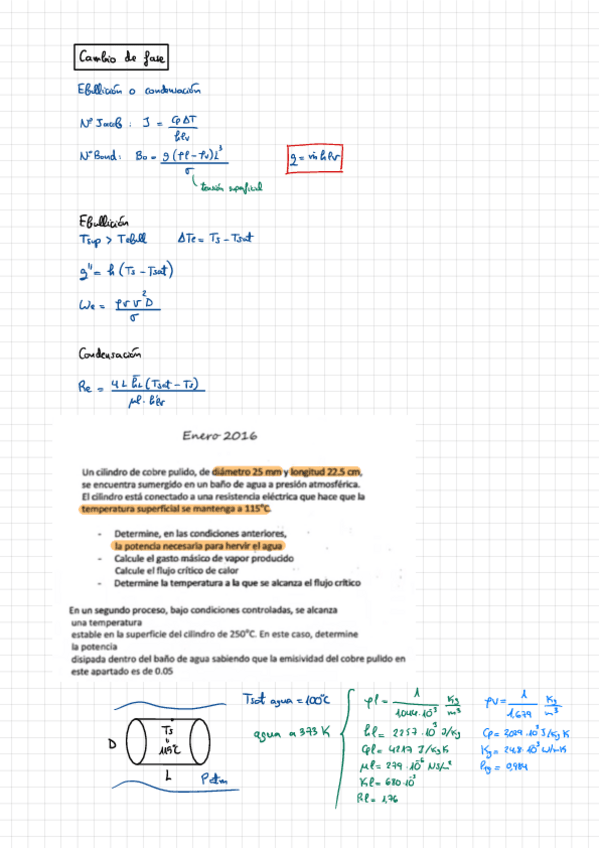 Cambio de fase
Ebullición o condensación
Nº Jacob: J = Cp ΔT / hlv
Nº Bond: Bo = g(ρl - ρv)L³ / σ
tensión superficial
q = ṁ hlv
Ebullición
Tsup > Tebull ΔTe = Ts - Tsat
q" = h (Ts - Tsat)
We = ρv v² D / σ
Condensación
Re = 4L h̄L (Tsat - Ts) / μl · h'lv
Enero 2016
Un cilindro de cobre pulido, de diámetro 25 mm y longitud 22.5 cm,
se encuentra sumergido en un baño de agua a presión atmosférica.
El cilindro está conectado a una resistencia eléctrica que hace que la
temperatura superficial se mantenga a 115°C.
- Determine, en las condiciones anteriores,
la potencia necesaria para hervir el agua
- Calcule el gasto másico de vapor producido
Calcule el flujo crítico de calor
- Determine la temperatura a la que se alcanza el flujo crítico
En un segundo proceso, bajo condiciones controladas, se alcanza
una temperatura
estable en la superficie del cilindro de 250°C. En este caso, determine
la potencia
disipada dentro del baño de agua sabiendo que la emisividad del cobre pulido en
este apartado es de 0.05
Tsat agua = 100°C
agua a 373 K
D
Ts
115°C
L
Patm
ρl = 1 / 1044·10⁻³ Kg/m³
hl = 2257·10³ J/Kg
Cpl = 4217 J/KgK
μl = 279·10⁻⁶ NS/m²
Kl = 680·10⁻³
Prl = 1,76
ρv = 1 / 1,679 Kg/m³
Cp = 2029·10³ J/Kg K
Kg = 24,8·10⁻³ W/mK
Prg = 0,984